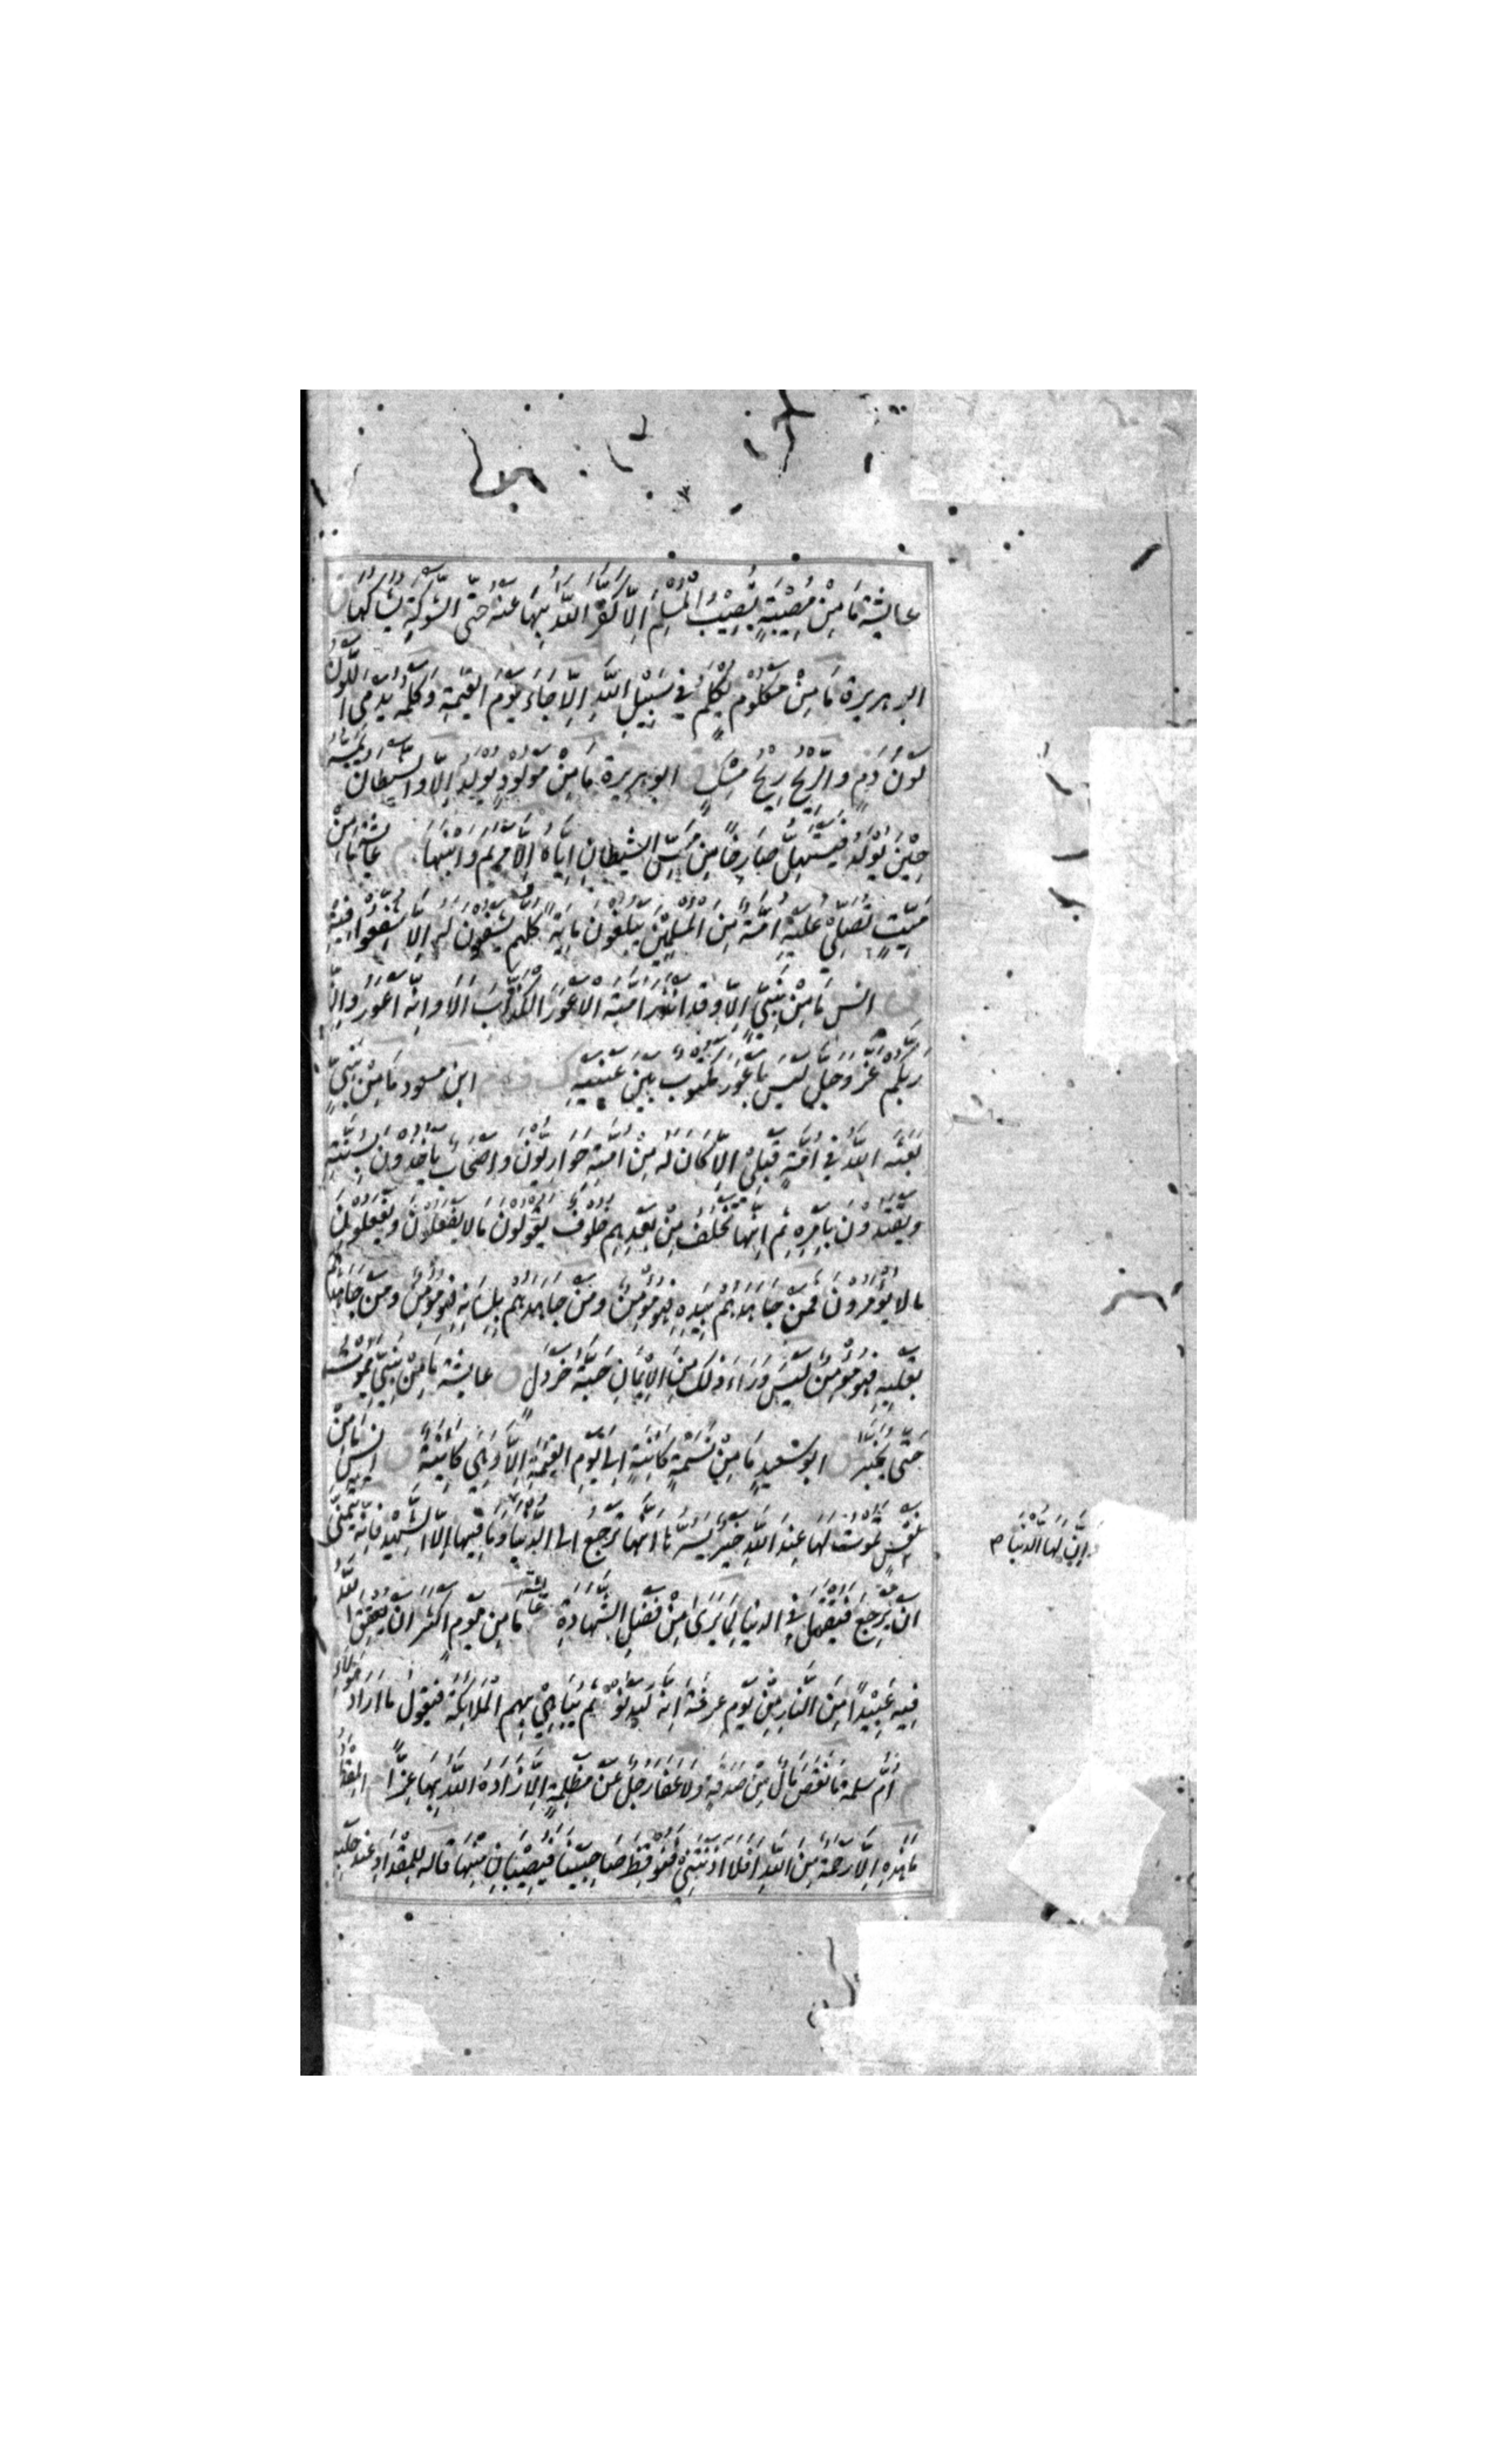 عايشة مَا مِنْ مُصِيْبَةٍ تُصِيْبُ الْمُسْلِمَ اِلَّا كَفَّرَ اللّٰهُ بِهَا عَنْهُ حَتَّى الشَّوْكَةِ يُشَاكُهَا ق
ابو هريرة مَا مِنْ مَكْلُوْمٍ يُكْلَمُ فِي سَبِيْلِ اللّٰهِ اِلَّا جَاءَ يَوْمَ الْقِيٰمَةِ وَكَلْمُهُ يَدْمٰى اللَّوْنُ
لَوْنُ دَمٍ وَالرِّيْحُ رِيْحُ مِسْكٍ ق ابو هريرة مَا مِنْ مَوْلُوْدٍ يُوْلَدُ اِلَّا وَالشَّيْطَانُ يَمَسُّهُ
حِيْنَ يُوْلَدُ فَيَسْتَهِلُّ صَارِخًا مِنْ مَسِّ الشَّيْطَانِ اِيَّاهُ اِلَّا مَرْيَمَ وَابْنَهَا م عايشة مَا مِنْ
مَيِّتٍ تُصَلِّيْ عَلَيْهِ اُمَّةٌ مِنَ الْمُسْلِمِيْنَ يَبْلُغُوْنَ مِايَةً كُلُّهُمْ يَشْفَعُوْنَ لَهُ اِلَّا شُفِّعُوْا فِيْهِ
ق انس مَا مِنْ نَبِيٍّ اِلَّا وَقَدْ اَنْذَرَ اُمَّتَهُ الْاَعْوَرَ الْكَذَّابَ اَلَا وَاِنَّهُ اَعْوَرُ وَاِنَّ
رَبَّكُمْ عَزَّ وَجَلَّ لَيْسَ بِاَعْوَرَ مَكْتُوْبٌ بَيْنَ عَيْنَيْهِ ك ف ر م ابن مسعود مَا مِنْ نَبِيٍّ
بَعَثَهُ اللّٰهُ فِي اُمَّةٍ قَبْلِيْ اِلَّا كَانَ لَهُ مِنْ اُمَّتِهِ حَوَارِيُّوْنَ وَاَصْحَابٌ يَاْخُذُوْنَ بِسُنَّتِهِ
وَيَقْتَدُوْنَ بِاَمْرِهِ ثُمَّ اِنَّهَا تَخْلُفُ مِنْ بَعْدِهِمْ خُلُوْفٌ يَقُوْلُوْنَ مَا لَا يَفْعَلُوْنَ وَيَفْعَلُوْنَ
مَا لَا يُؤْمَرُوْنَ فَمَنْ جَاهَدَهُمْ بِيَدِهِ فَهُوَ مُؤْمِنٌ وَمَنْ جَاهَدَهُمْ بِلِسَانِهِ فَهُوَ مُؤْمِنٌ وَمَنْ جَاهَدَهُمْ
بِقَلْبِهِ فَهُوَ مُؤْمِنٌ لَيْسَ وَرَاءَ ذٰلِكَ مِنَ الْاِيْمَانِ حَبَّةُ خَرْدَلٍ ق عايشة مَا مِنْ نَبِيٍّ يَمُوْتُ
حَتّٰى يُخَيَّرَ ق ابو سعيد مَا مِنْ نَسَمَةٍ كَائِنَةٍ اِلٰى يَوْمِ الْقِيٰمَةِ اِلَّا وَهِيَ كَائِنَةٌ ق انس مَا مِنْ
نَفْسٍ تَمُوْتُ لَهَا عِنْدَ اللّٰهِ خَيْرٌ يَسُرُّهَا اَنَّهَا تَرْجِعُ اِلَى الدُّنْيَا وَمَا فِيْهَا اِلَّا الشَّهِيْدُ فَاِنَّهُ يَتَمَنّٰى
وَاَنَّ لَهَا الدُّنْيَا م
اَنْ يَرْجِعَ فَيُقْتَلَ فِي الدُّنْيَا لِمَا يَرٰى مِنْ فَضْلِ الشَّهَادَةِ م عايشة مَا مِنْ يَوْمٍ اَكْثَرَ اَنْ يُعْتِقَ اللّٰهُ
فِيْهِ عَبِيْدًا مِنَ النَّارِ مِنْ يَوْمِ عَرَفَةَ اِنَّهُ لَيَدْنُوْ ثُمَّ يُبَاهِيْ بِهِمُ الْمَلَائِكَةَ فَيَقُوْلُ مَا اَرَادَ هٰؤُلَاءِ
م اُمّ سلمة مَا نَقَصَ مَالٌ مِنْ صَدَقَةٍ وَلَا عَفَا رَجُلٌ عَنْ مَظْلِمَةٍ اِلَّا زَادَهُ اللّٰهُ بِهَا عِزًّا م المقداد
مَا هٰذِهِ اِلَّا رَحْمَةٌ مِنَ اللّٰهِ اَفَلَا اٰذَنْتَنِيْ فَنُوْقِظَ صَاحِبَيْنَا فَيُصِيْبَانِ مِنْهَا قَالَهُ لِلْمِقْدَادِ عِنْدَ حَلْبِهِ